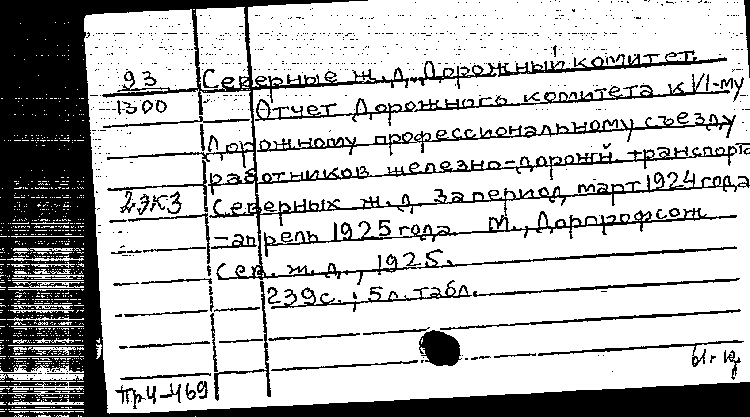 93 Северные ж.д. Дорожный комитет.
1300 Отчет Дорожного комитета к VI-му
Дорожному профессиональному съезду
работников железно-дорожн. транспорта
2экз Северных ж.д. за период март 1924 года
-апрель 1925 года. М., Дорпрофсож
Сев. ж.д., 1925.
239с.; 5л. табл.